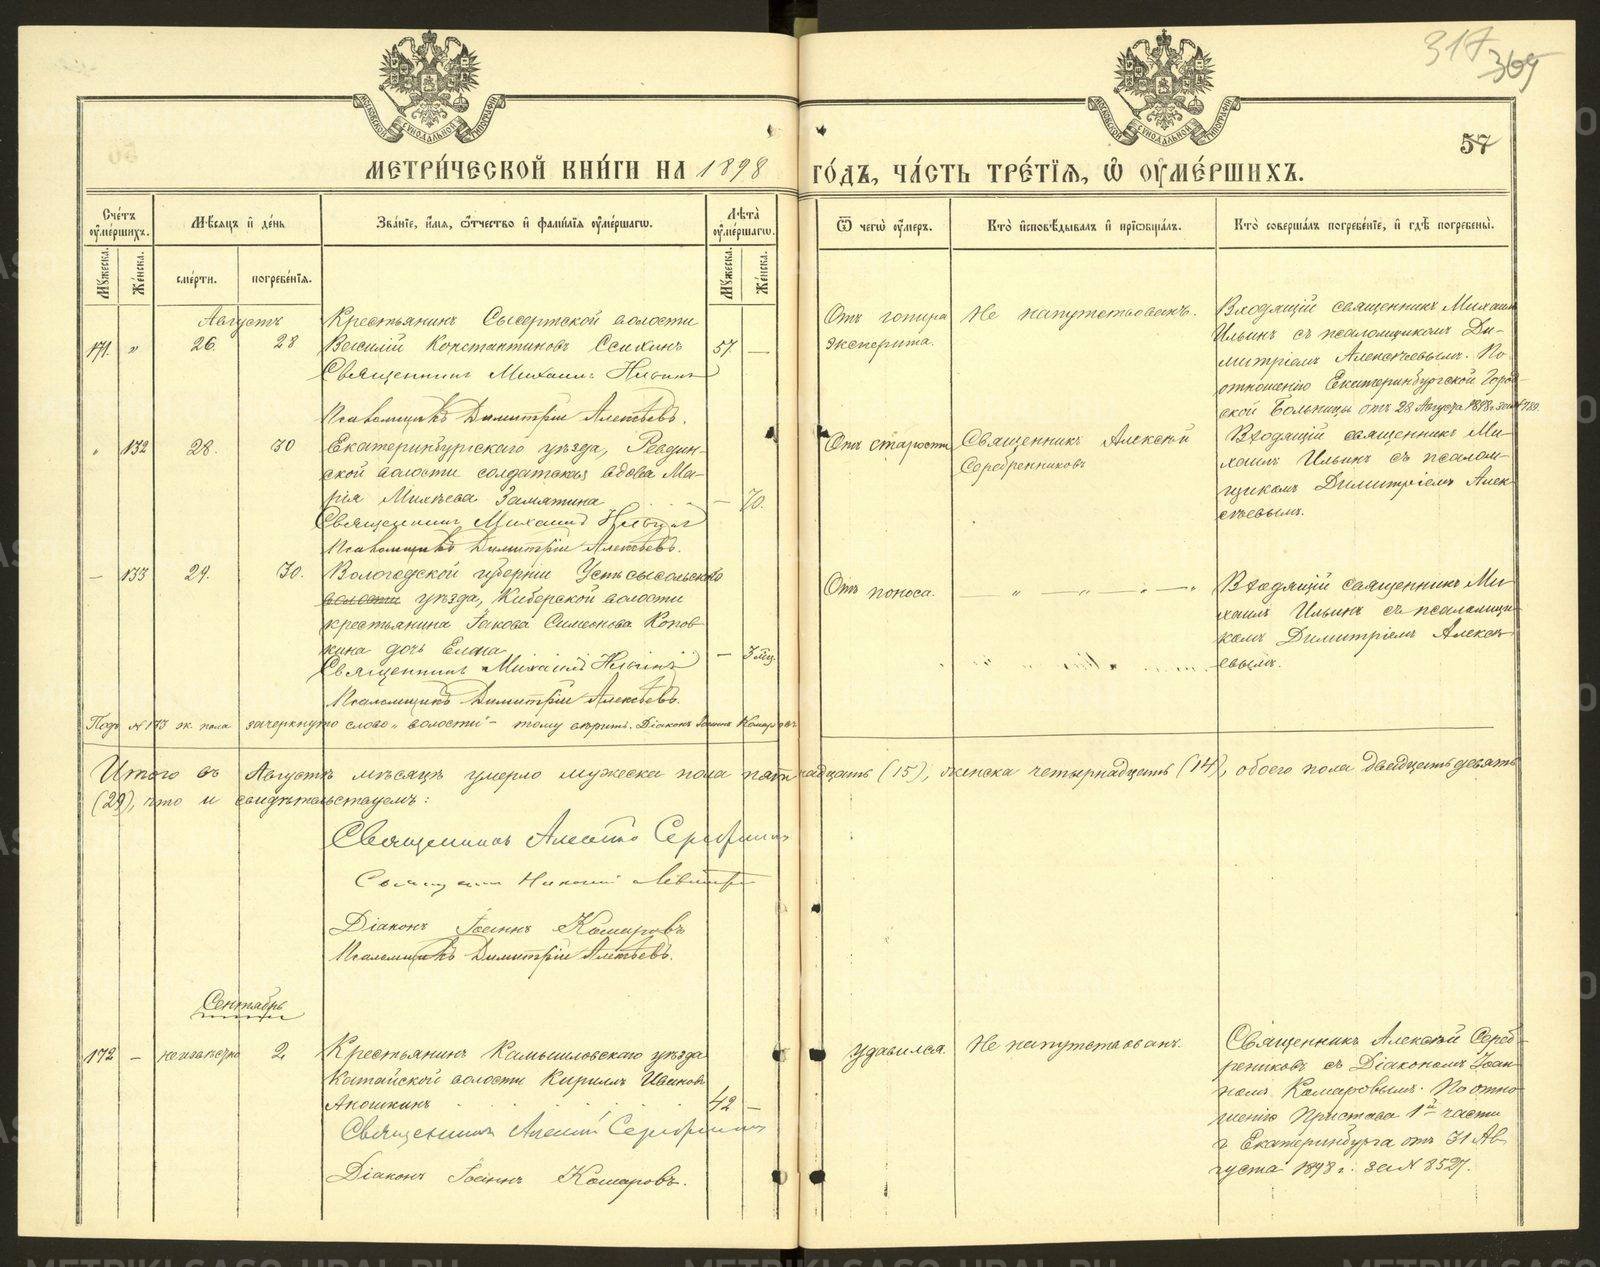 317
369
57
МОСКОВСКОЙ СѴНОДАЛЬНОЙ ТИПОГРАФІИ
МОСКОВСКОЙ СѴНОДАЛЬНОЙ ТИПОГРАФІИ
МЕТРИ́ЧЕСКОЙ КНИ́ГИ НА 1898 ГО́ДЪ, ЧА́СТЬ ТРЕ́ТІѦ, Ѡ҆ ОУ҆МЕ́РШИХЪ.
Счетъ оумершихъ.
Мужеска.
Женска.
Мѣсяцъ и день
смерти.
погребенія.
Званіе, имя, отчество и фамилія оумершаго.
Лѣта оумершаго.
Мужеска.
Женска.
Ѿ чего оумеръ.
Кто исповѣдывалъ и пріобщалъ.
Кто совершалъ погребеніе, и гдѣ погребены.
Августъ
171. „ 26. 28
Крестьянинъ Сысертской волости
Василій Константиновъ 57. —
Священникъ Михаилъ Ильинъ
Псаломщикъ Димитрій Алексѣевъ.
Отъ
Не напутствованъ.
Входящій священникъ Михаилъ
Ильинъ съ псаломщикомъ Ди-
митріемъ Алексѣевымъ. По
отношенію Екатеринбургской Город-
ской Больницы отъ 28 Августа 1898 г. за №
„ 132 28. 30
Екатеринбургскаго уѣзда, Ревдин-
ской волости солдатская вдова Ма-
рія Михѣева Замятина — 70.
Священникъ Михаилъ Ильинъ
Псаломщикъ Димитрій Алексѣевъ.
Отъ старости
Священникъ Алексѣй
Серебренниковъ
Входящій священникъ Ми-
хаилъ Ильинъ съ псалом-
щикомъ Димитріемъ Алек-
сѣевымъ.
— 133 29. 30.
Вологодской губерніи Устьсысольскаго
волости уѣзда, Киберской волости
крестьянина Іакова Симеонова Копов-
кина дочь Елена — 3 мѣс.
Священникъ Михаилъ Ильинъ
Псаломщикъ Димитрій Алексѣевъ.
Отъ поноса.
— „ — „ — „ — „
Входящій священникъ Ми-
хаилъ Ильинъ съ псаломщи-
комъ Димитріемъ Алексѣ-
евымъ.
Подъ № 133 ж. пола зачеркнуто слово „волости“ – тому вѣрить. Діаконъ Іоаннъ Комаровъ
Итого въ Августѣ мѣсяцѣ умерло мужеска пола пятнадцать (15), женска четырнадцать (14), обоего пола двадцать девять
(29), что и свидѣтельствуемъ:
Священникъ Алексѣй Серебренниковъ
Священникъ
Діаконъ Іоаннъ Комаровъ
Псаломщикъ Димитрій Алексѣевъ.
Сентябрь
172 — неизвѣстно 2
Крестьянинъ Камышловскаго уѣзда
Катайской волости Кириллъ Ивановъ
Аношкинъ 42 —
Священникъ Алексѣй Серебренниковъ
Діаконъ Іоаннъ Комаровъ.
Удавился.
Не напутствованъ.
Священникъ Алексѣй Сереб-
рениковъ съ Діакономъ Іоан-
номъ Комаровымъ. По отно-
шенію Пристава 1й части
г. Екатеринбурга отъ 31 Ав-
густа 1898 г. за № 8527.